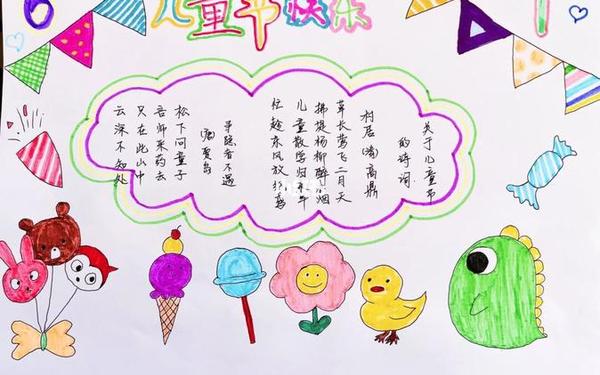 6
儿童节快乐
1
关于儿童节
的诗词
村居(清)高鼎
草长莺飞二月天
拂堤杨柳醉春烟
儿童散学归来早
忙趁东风放纸鸢
寻隐者不遇
(唐)贾岛
松下问童子
言师采药去
只在此山中
云深不知处